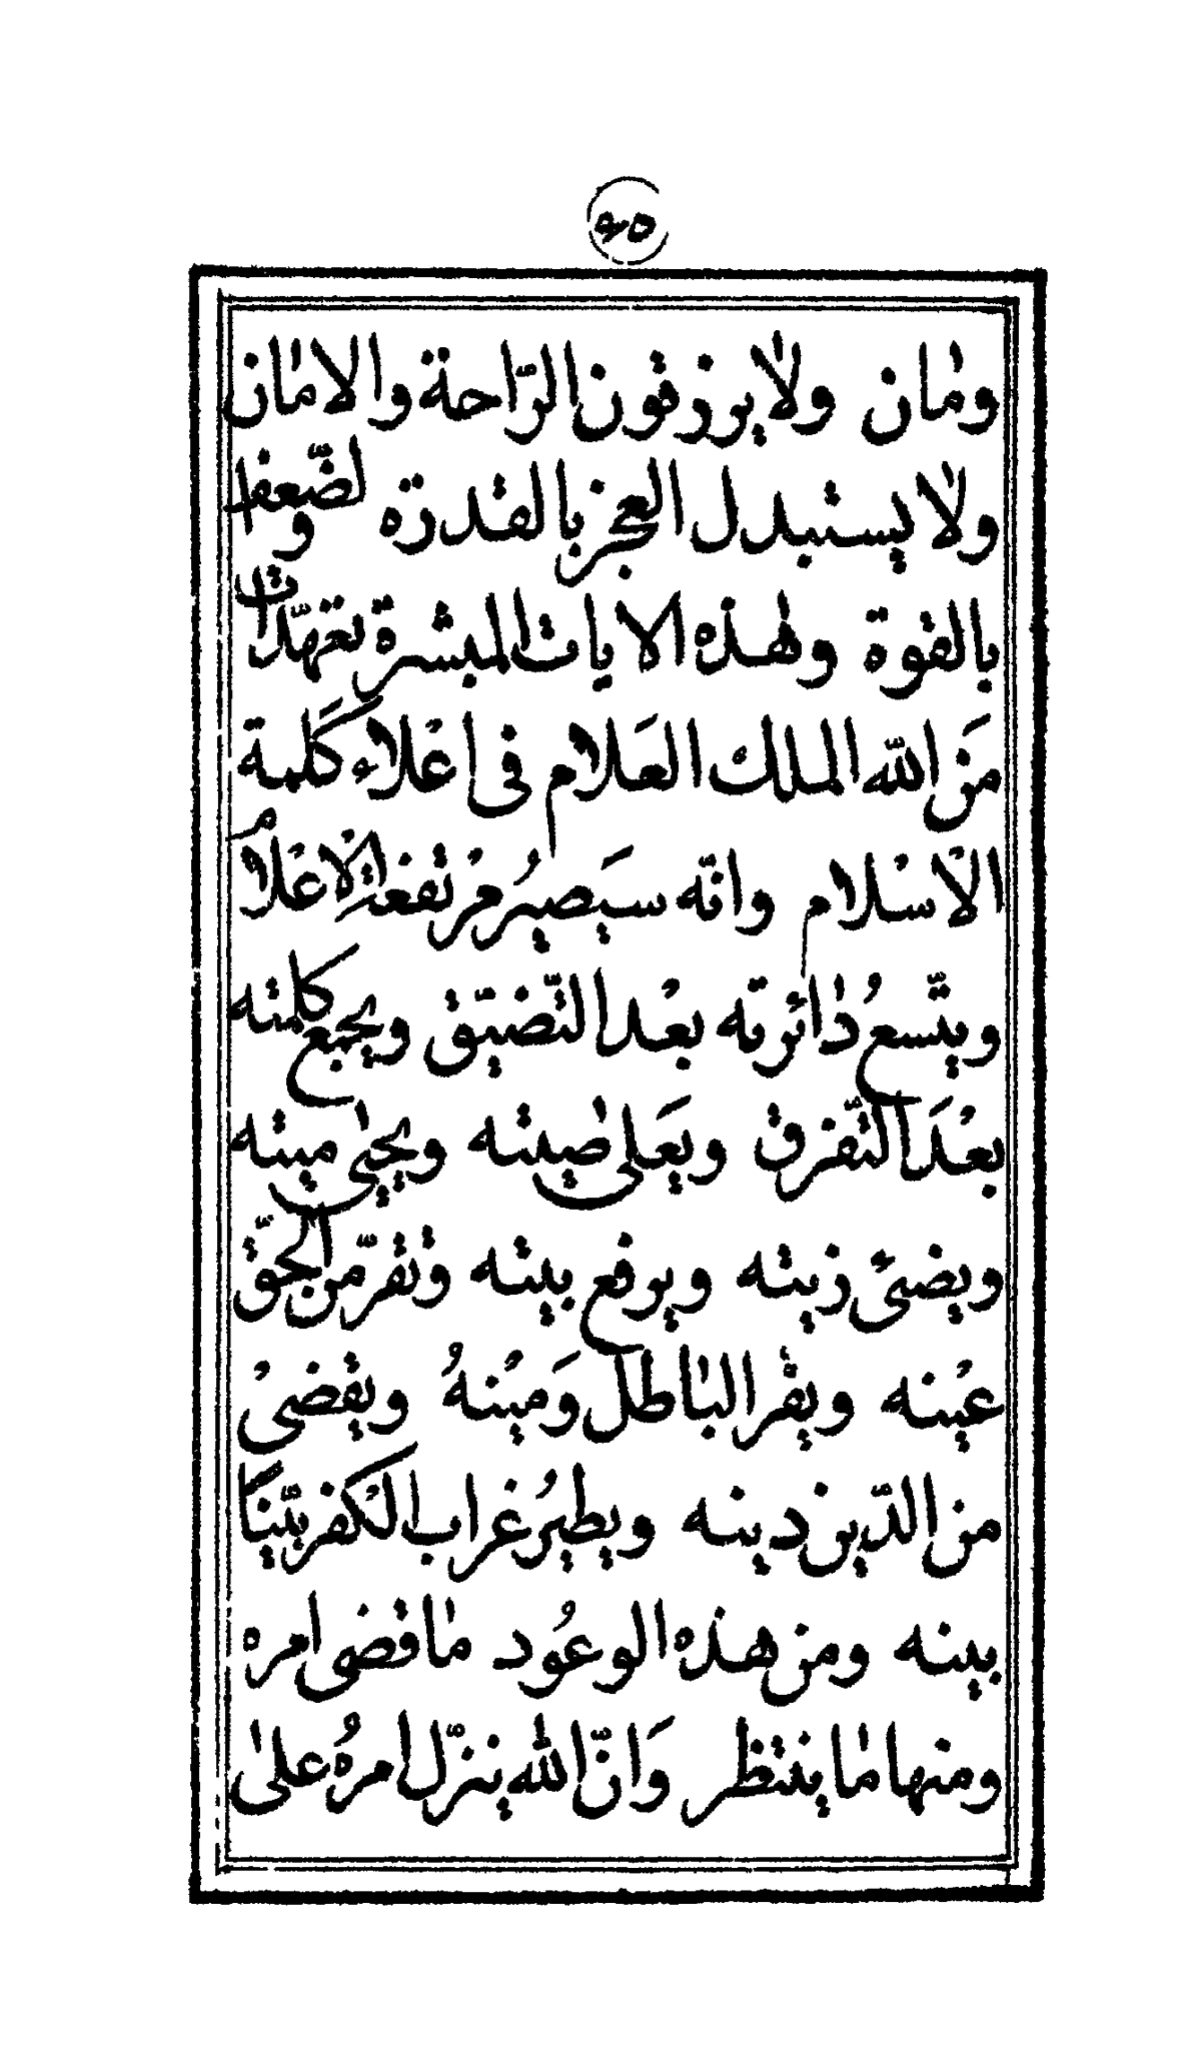 ٩٥
ومٰان ولٰا يرزقون الرّاحة والامٰان
ولٰا يستبدل العجز بالقدرة والضّعف
بالقوة وهٰذه الايات المبشرة تعهّدات
مَن الله الملك العَلام فى اعْلاء كَلمة
الاسْلام وانّه سيَصيُر مرْتفعة الاعْلام
ويتّسعُ دٰائرته بعْد التّضيّق ويجمع كلمته
بعْدَ التّفرق ويَعلى صٰيته ويحيٰى ميته
ويضىئ زيته ويرفع بيته وتقرّ من الحقّ
عيْنه ويفْر البٰاطل وَميْنهُ ويقضىْ
من الدّين دينه ويطيرُ غراب الكْفر بيّنًا
بينه ومن هذه الوعُود مٰا قضى امره
ومنها مٰا ينتظر وَانّ الله ينزّل امرهُ علىٰ